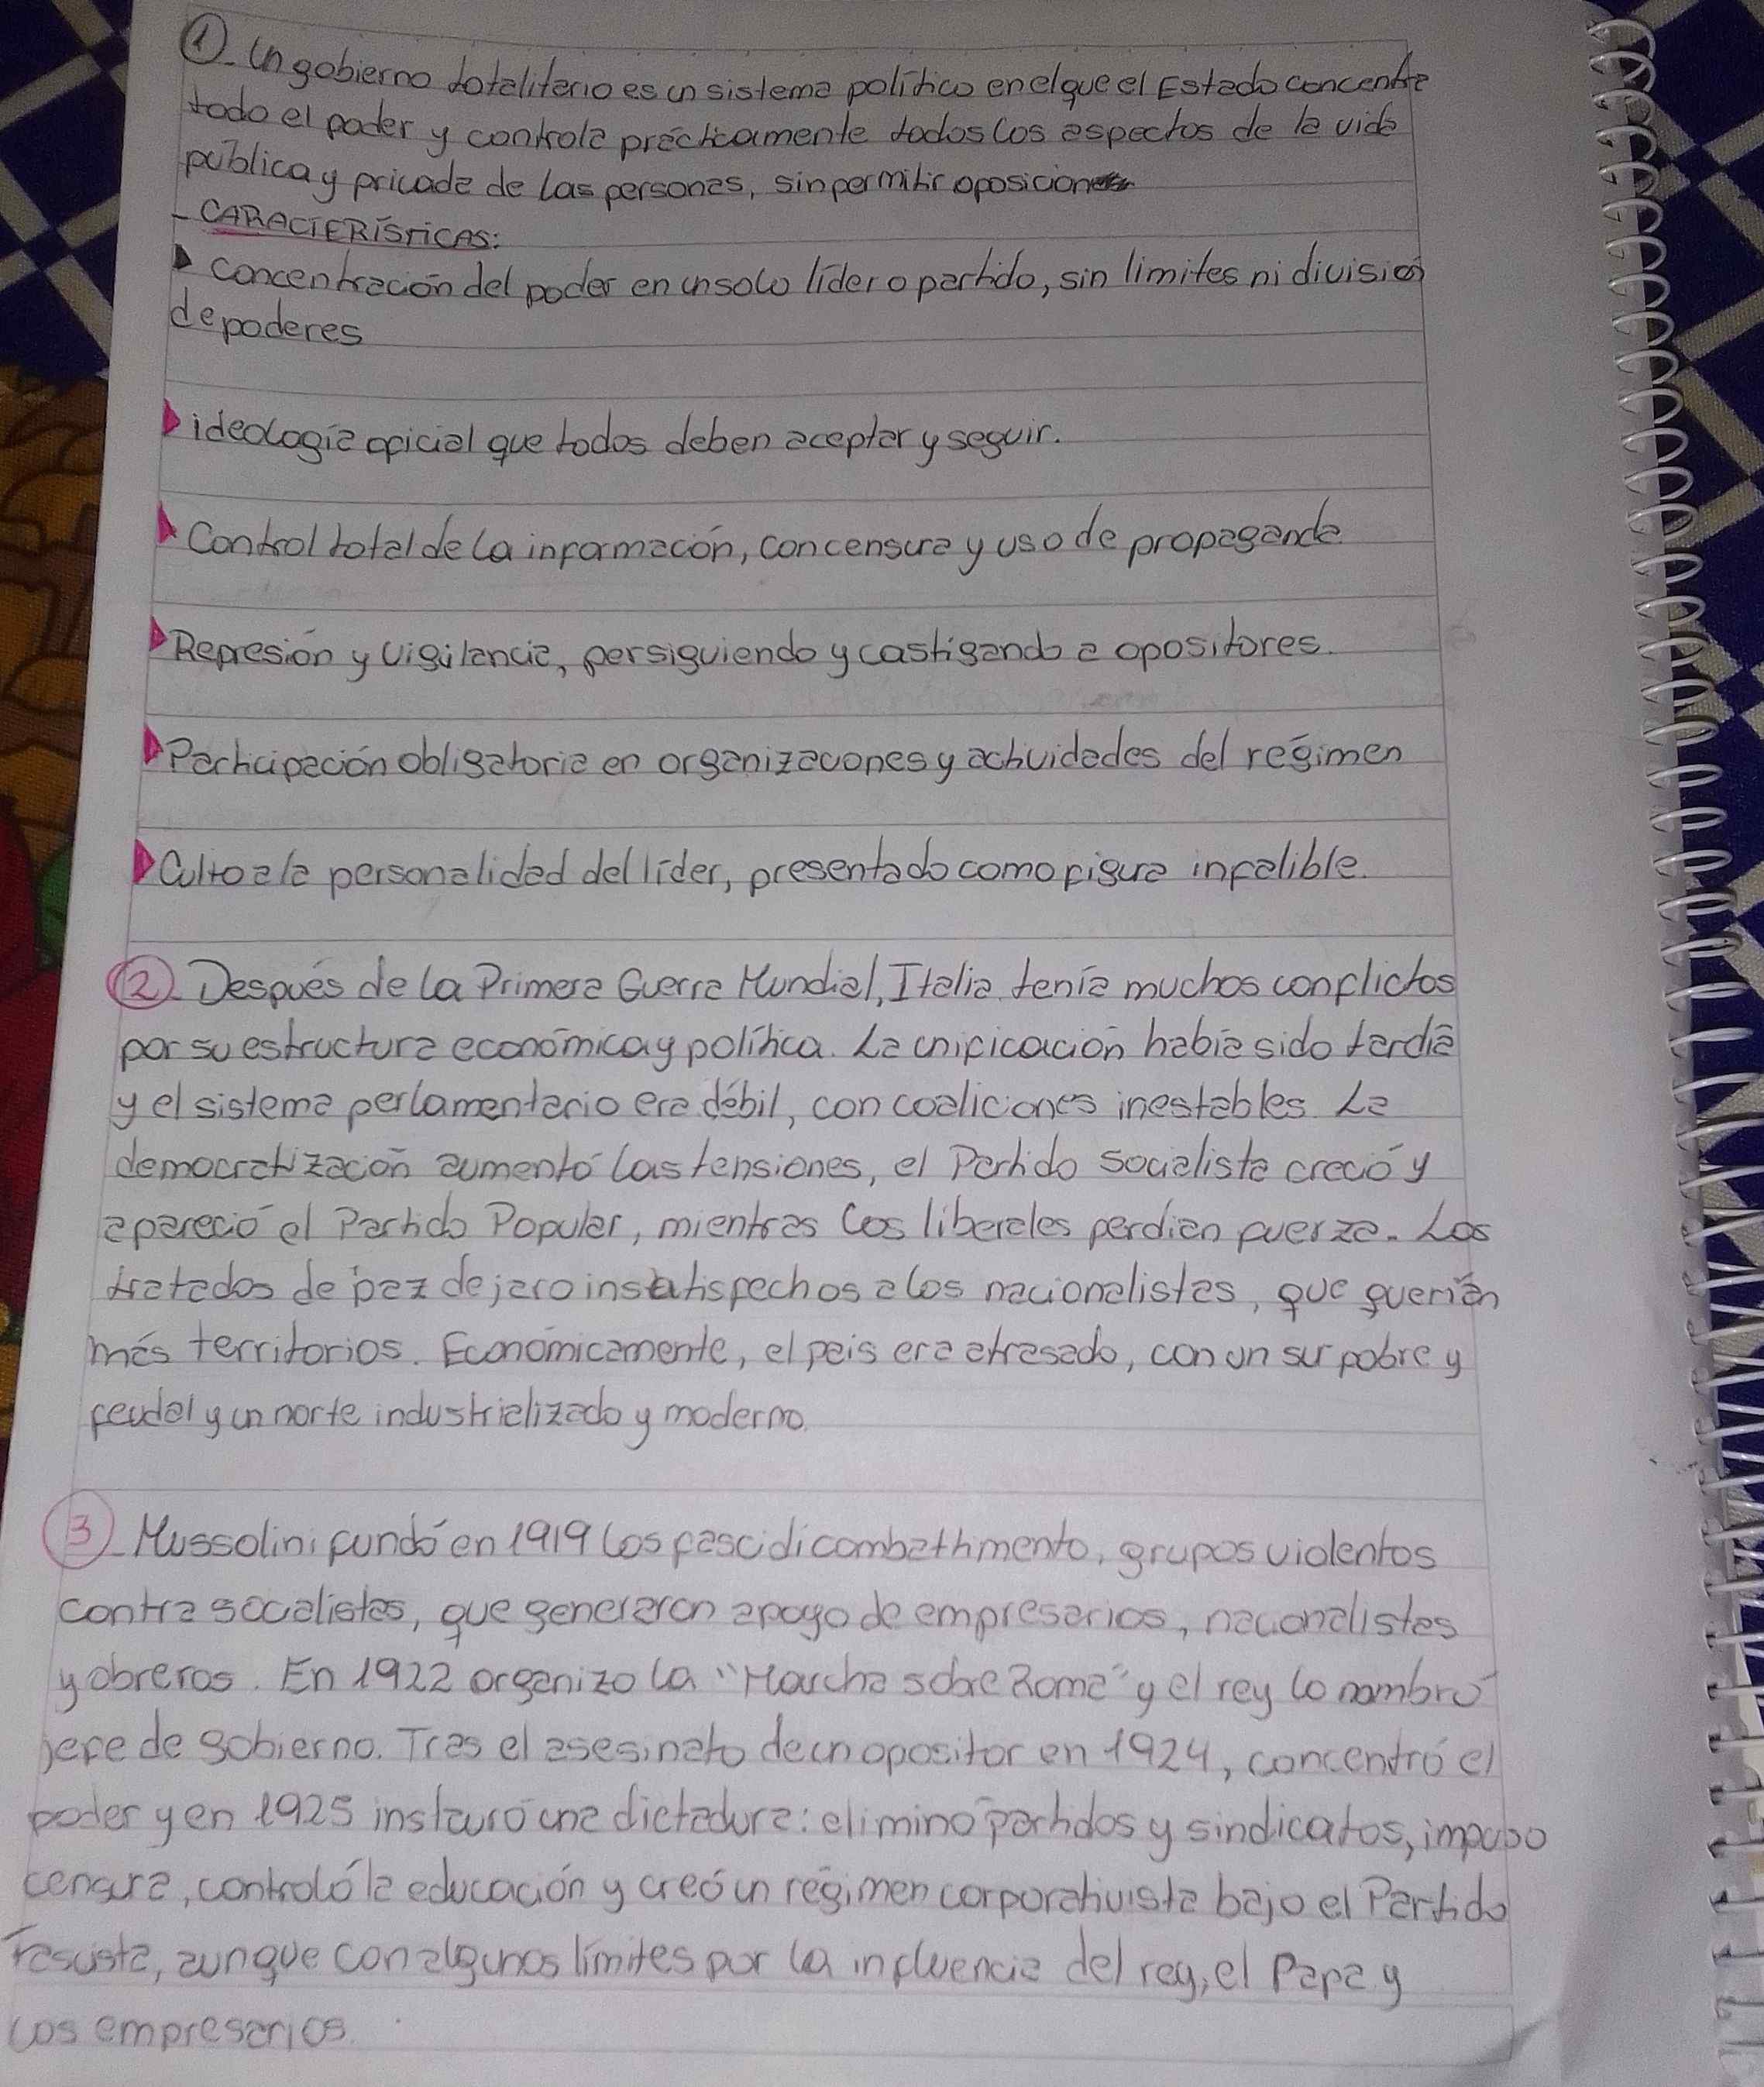 ①. Un gobierno totalitario es un sistema político en el que el Estado concentra
todo el poder y controla prácticamente todos los aspectos de la vida
pública y pricada de las personas, sin permitir oposicion
- CARACTERÍSTICAS:
Concentración del poder en un solo líder o partido, sin limites ni división
de poderes
ideología oficial que todos deben aceptar y seguir.
Control total de la informacón, con censura y uso de propaganda
Represión y vigilancia, persiguiendo y castigando a opositores.
Participación obligatoria en organizaciones y actividades del regímen
Culto a la personalidad del líder, presentado como figura infalible.
②. Después de la Primera Guerra Mundial, Italia tenía muchos conflictos
por su estructura económica y política. La unificación había sido tardía
y el sistema perlamentario era débil, con coaliciones inestables. La
democratización aumentó las tensiones, el Partido socialista creció y
apareció el Partido Popular, mientras los liberales perdian fuerza. Los
tratados de paz dejaro insatisfechos a los nacionalistas, que querían
más territorios. Económicamente, el pais era atrasado, con un sur pobre y
feudal y un norte industrializado y moderno.
③. Mussolini fundó en 1919 los fasci di combathmento, grupos violentos
contra socialistas, que generaron apoyo de empresarios, nacionalistas
y obreros. En 1922 organizo la "Marcha sobre Roma" y el rey lo nombró
jefe de gobierno. Tras el asesinato de un opositor en 1924, concentró el
poder y en 1925 instauró una dictadura: elimino partidos y sindicatos, impuso
censura, controló la educación y creó un regímen corporativista bajo el Partido
Fascista, aunque con algunos límites por la influencia del rey, el Papa y
los empresarios.